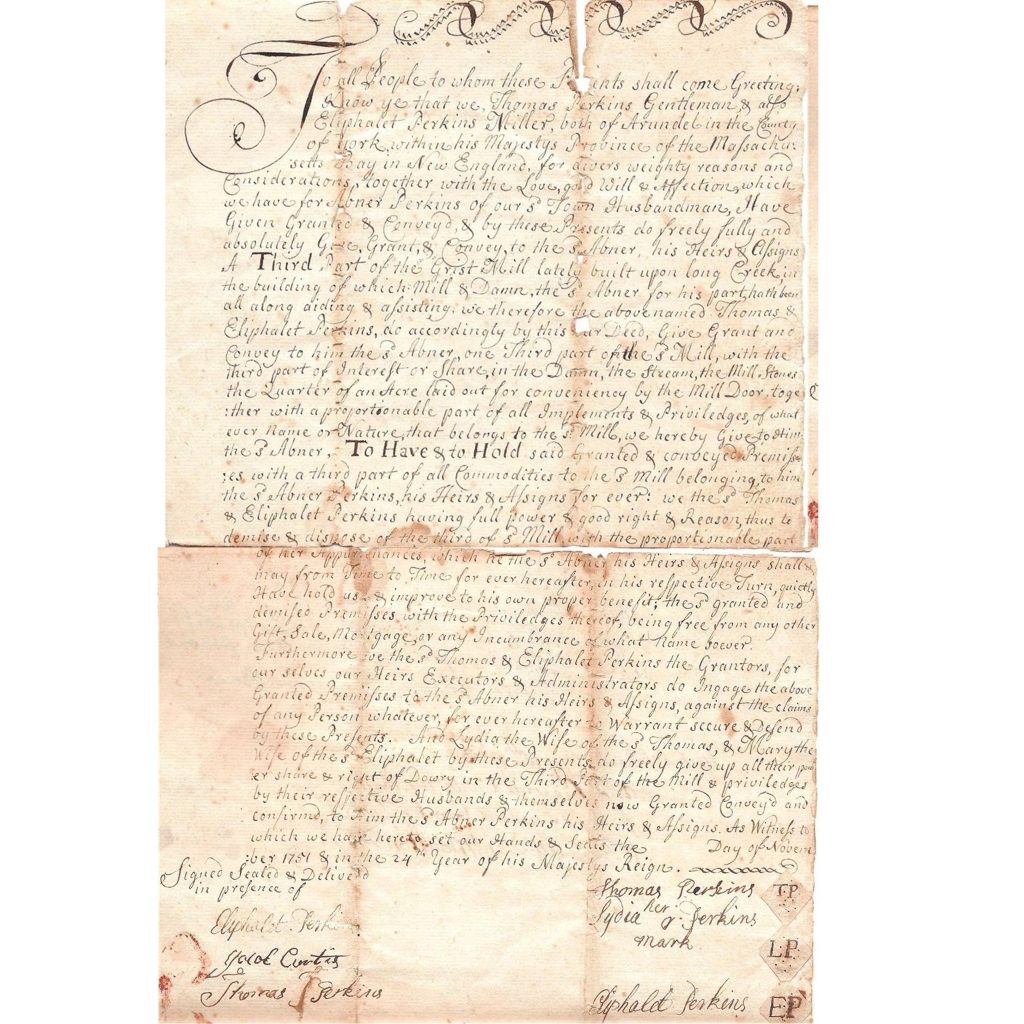 To all People to whom these Presents shall come Greeting;
Know ye that we, Thomas Perkins Gentleman, & also
Eliphalet Perkins Miller, both of Arundel in the County
of York, within his Majestys Province of the Massachu:
:setts Bay in New England, for divers weighty reasons and
Considerations, together with the Love, good Will & Affection, which
we have for Abner Perkins of our sd Town Husbandman, Have
Given Granted & Convey'd, & by these Presents do freely fully and
absolutely Give, Grant, & Convey, to the sd Abner, his Heirs & Assigns
A Third Part of the Grist Mill lately built upon long Creek, in
the building of which Mill & Damn, the sd Abner for his part, hath been
all along aiding & assisting; we therefore the above named Thomas &
Eliphalet Perkins, do accordingly by this our Deed, Give Grant and
Convey to him the sd Abner, one Third part of the sd Mill, with the
third part of Interest or Share, in the Damn, the Stream, the Mill Stones
the Quarter of an Acre laid out for conveniency by the Mill Door, toge
:ther with a proportionable part of all Implements & Priviledges, of what
ever Name or Nature, that belongs to the sd Mill, we hereby Give to Him
the sd Abner, To Have & to Hold said Granted & conveyed Premiss
:es with a third part of all Commodities to the sd Mill belonging, to him
the sd Abner Perkins, his Heirs & Assigns for ever: we the sd Thomas
& Eliphalet Perkins having full power & good right & Reason, thus to
demise & dispose of the third of sd Mill, with the proportionable part
of her Appurtenances, which he the sd Abner his Heirs & Assigns shall &
may from Time to Time for ever hereafter, in his respective Turn, quietly
Have hold use & improve to his own proper benefit; the sd granted and
demised Premisses, with the Priviledges thereof, being free from any other
Gift, Sale, Mortgage, or any Incumbrance of what name soever.
Furthermore we the sd Thomas & Eliphalet Perkins the Grantors, for
our selves our Heirs Executors & Administrators do Ingage the above
Granted Premisses to the sd Abner his Heirs & Assigns, against the claims
of any Person whatever, for ever hereafter to Warrant secure & Defend
by these Presents. And Lydia the Wife of the sd Thomas, & Mary the
Wife of the sd Eliphalet by these Presents do freely give up all their pow
er share & right of Dowry in the Third Part of the Mill & priviledges
by their respective Husbands & themselves now Granted Convey'd and
confirm'd, to Him the sd Abner Perkins his Heirs & Assigns. As Witness to
which we have hereto set our Hands & Seals the Day of Novem
:ber 1751 & in the 24th Year of his Majestys Reign.
Signed Sealed & Deliverd
in presence of
Eliphalet Perkins
Jacob Curtis
Thomas Perkins
Thomas Perkins TP
Lydia her Perkins
mark
LP
Eliphalet Perkins EP